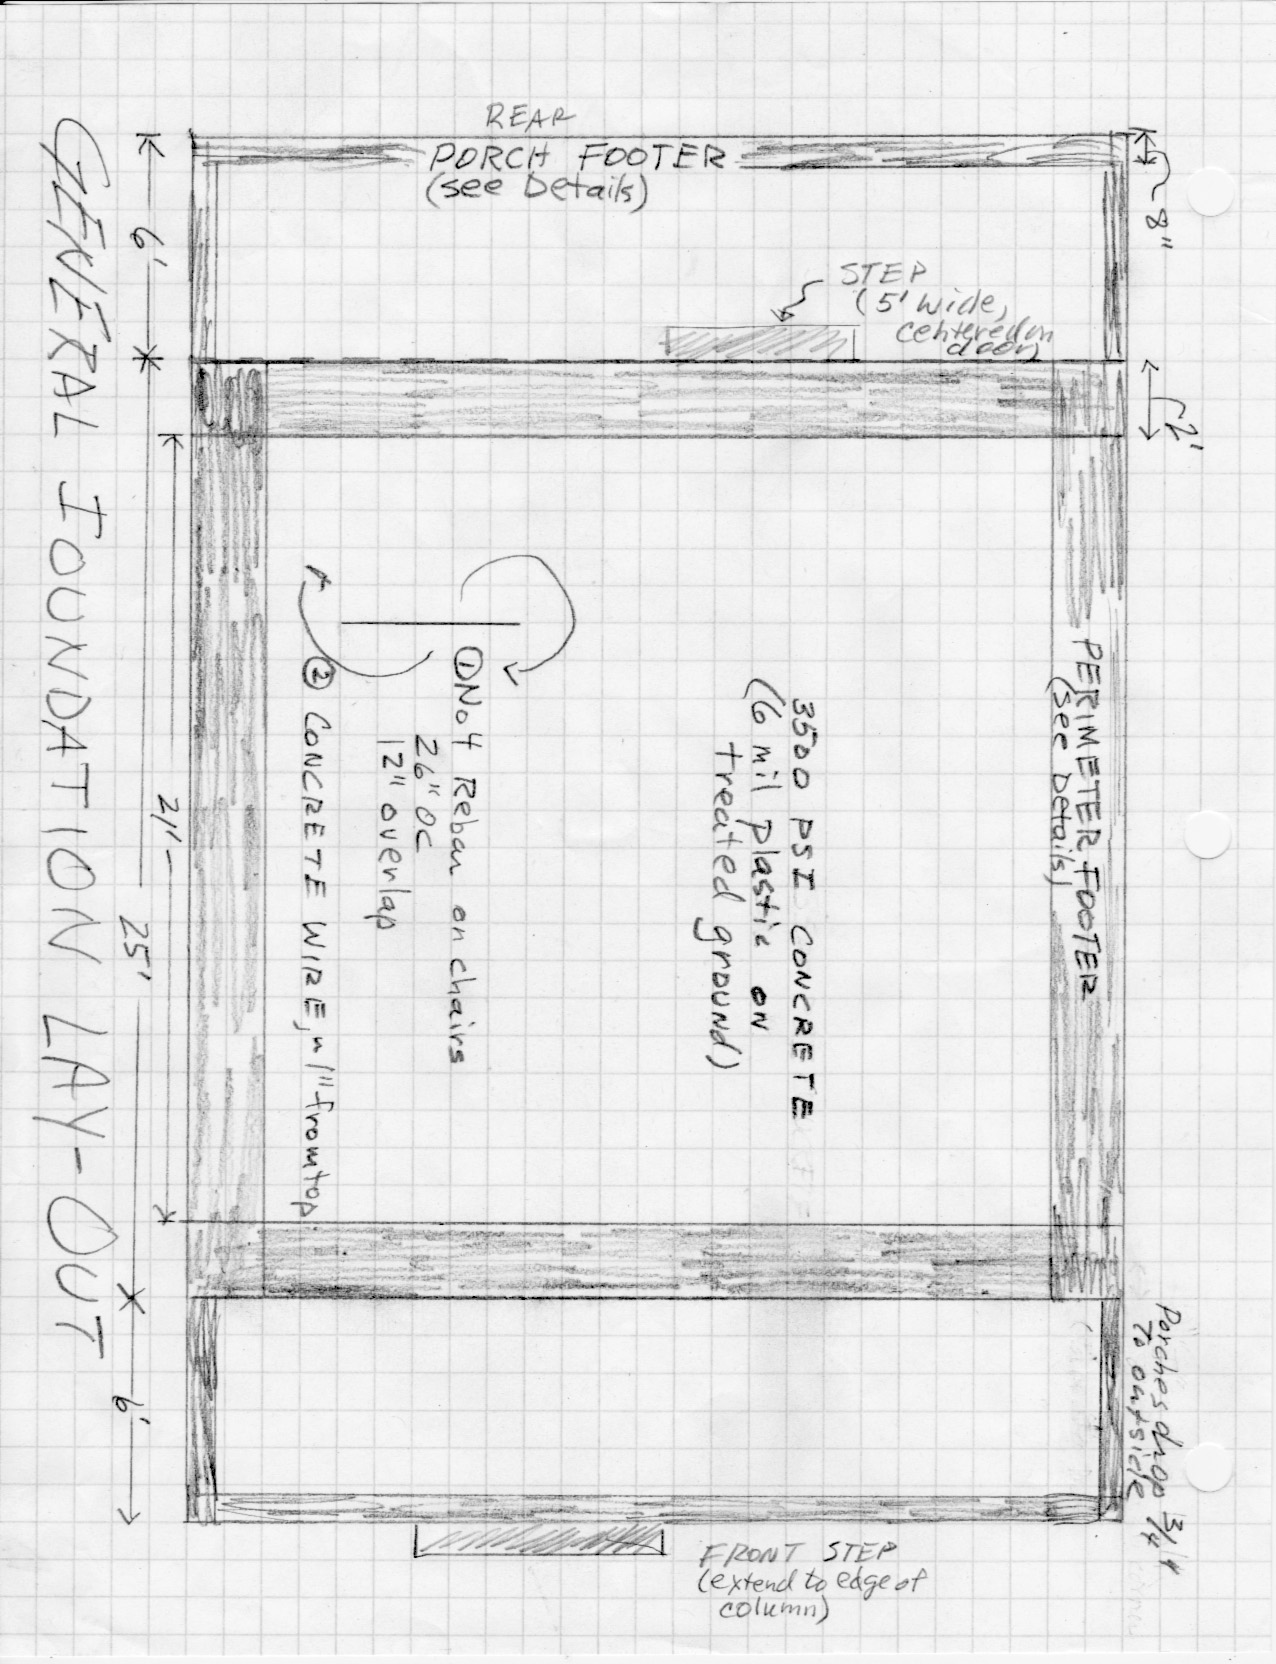 REAR
PORCH FOOTER
(see Details)
8"
6'
STEP
(5' wide,
centered on
door)
2'
GENERAL FOUNDATION LAY-OUT
25'
21'
6'
PERIMETER FOOTER
(see Details)
3500 PSI CONCRETE
(6 mil plastic on
treated ground)
① No 4 Rebar on chairs
26" OC
12" overlap
② CONCRETE WIRE, ~1" from top.
Porches drop 3/4
To outside
FRONT STEP
(extend to edge of
column)